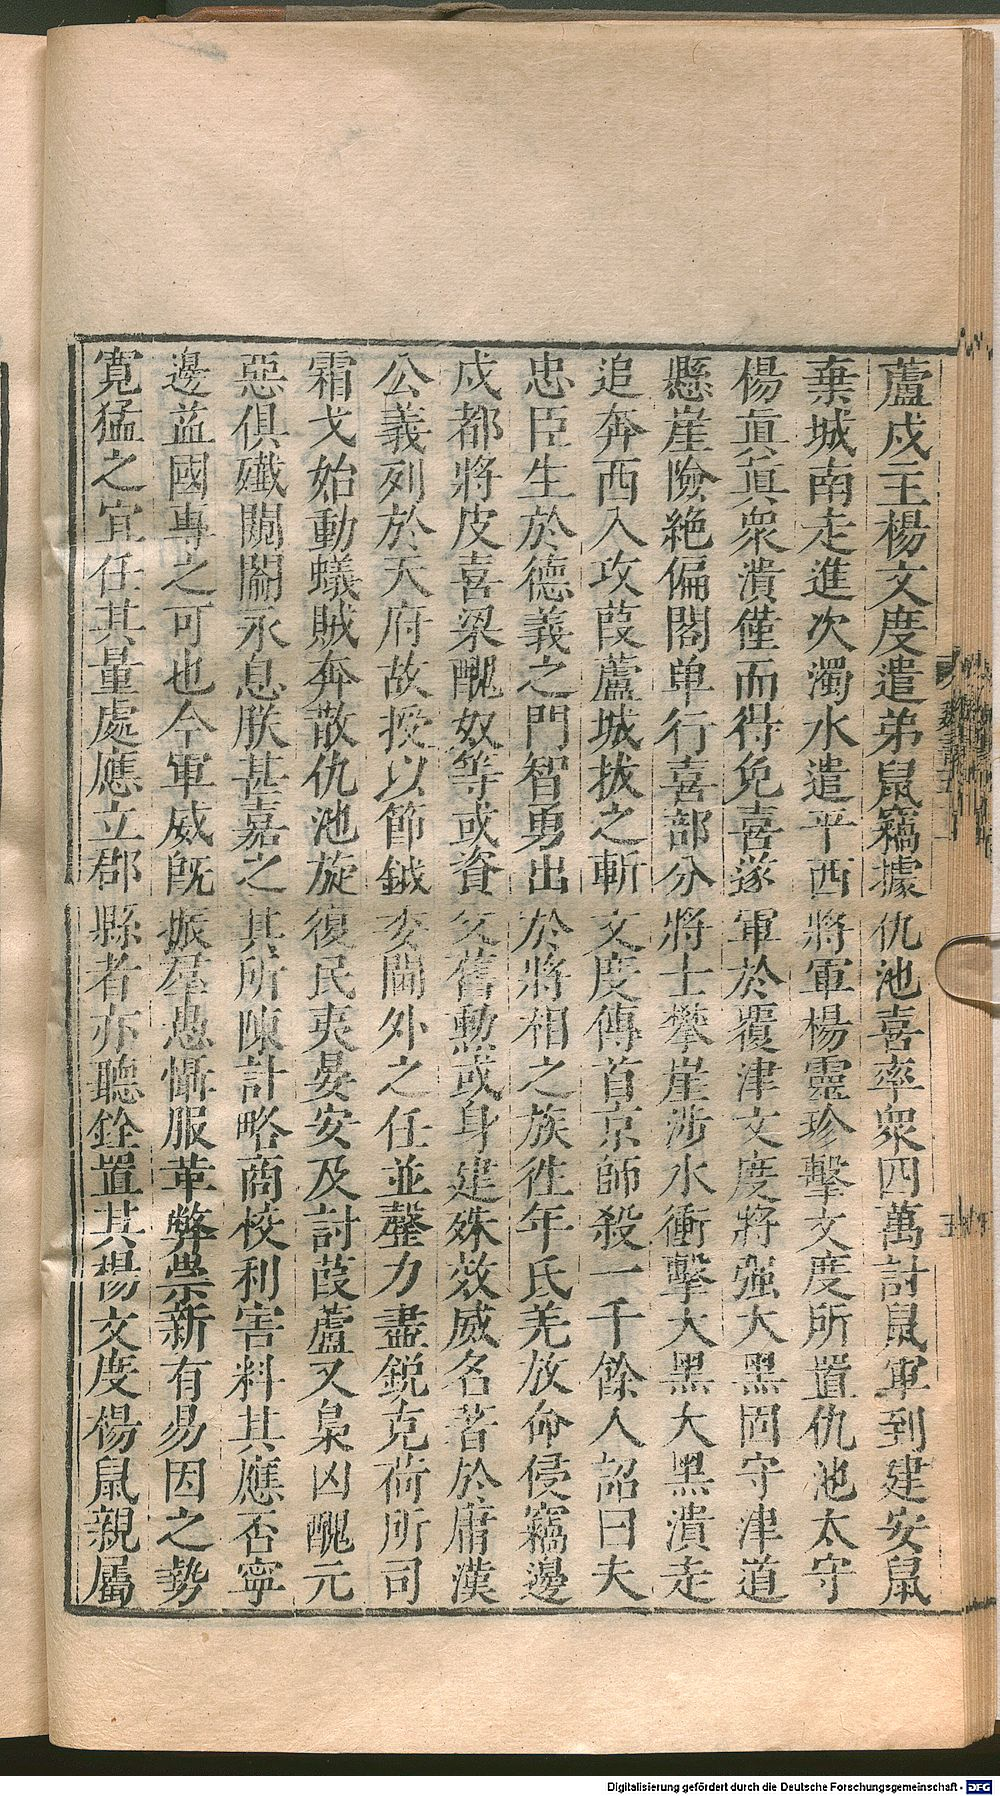 蘆戍主楊文度遣弟鼠竊據仇池喜率衆四萬討鼠軍到建安鼠
棄城南走進次濁水遣平西將軍楊靈珍擊文度所置仇池太守
楊眞眞衆潰僅而得免喜遂軍於覆津文度將强大黑固守津道
懸崖險絶偏閣单行喜部分將士攀崖涉水衝擊大黑大黑潰走
追奔西入攻葭蘆城拔之斬文度傳首京師殺一千餘人詔曰夫
忠臣生於德義之門智勇出於將相之族徃年氏羌放命侵竊邊
戍都將皮喜梁醜奴等或資父舊勲或身建殊效威名著於庸漢
公義列於天府故授以節鉞委閫外之任並罄力盡鋭克荷所司
霜戈始動蟻賊奔散仇池旋復民夷晏安及討葭蘆又梟凶醜元
惡俱殲闕闞永息朕甚嘉之其所陳計略商校利害料其應否寧
邊益國專之可也今軍威旣振羣愚懾服革弊崇新有易因之勢
寛猛之宜任其量處應立郡縣者亦聽銓置其楊文度楊鼠親屬
魏書五
Digitalisierung gefördert durch die Deutsche Forschungsgemeinschaft - DFG